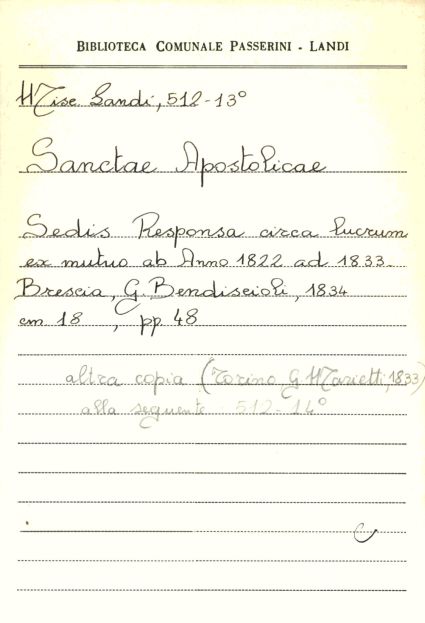 BIBLIOTECA COMUNALE PASSERINI - LANDI
Misc. Landi, 512-13°
Sanctae Apostolicae
Sedis Responsa circa lucrum
ex mutuo ab Anno 1822 ad 1833.
Brescia, G. Bendiscioli, 1834
cm 18 , pp. 48
altra copia (Torino G Marietti, 1833)
alla seguente 512-14°